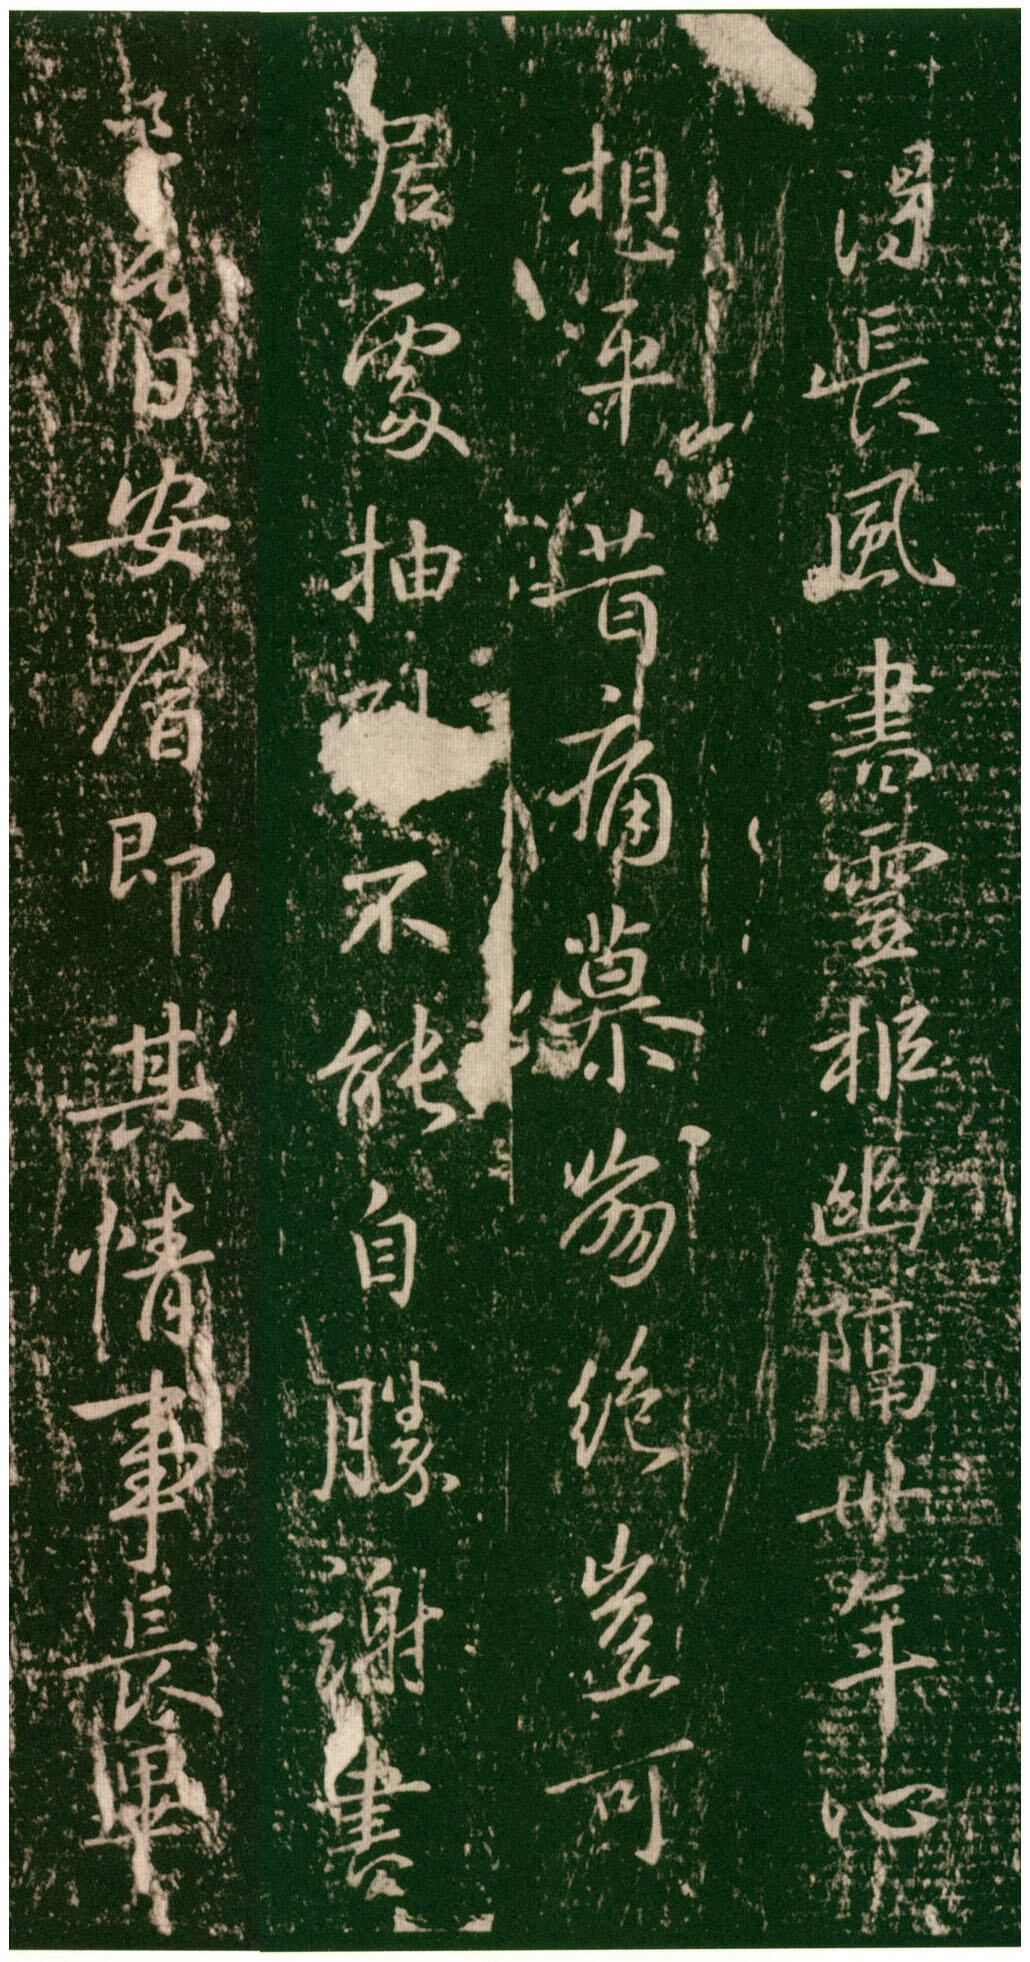 得長風書靈柩幽隔卅年心
想平昔痛慕崩絕豈可
居處抽不能自勝謝書
昔日安厝即其情事長畢